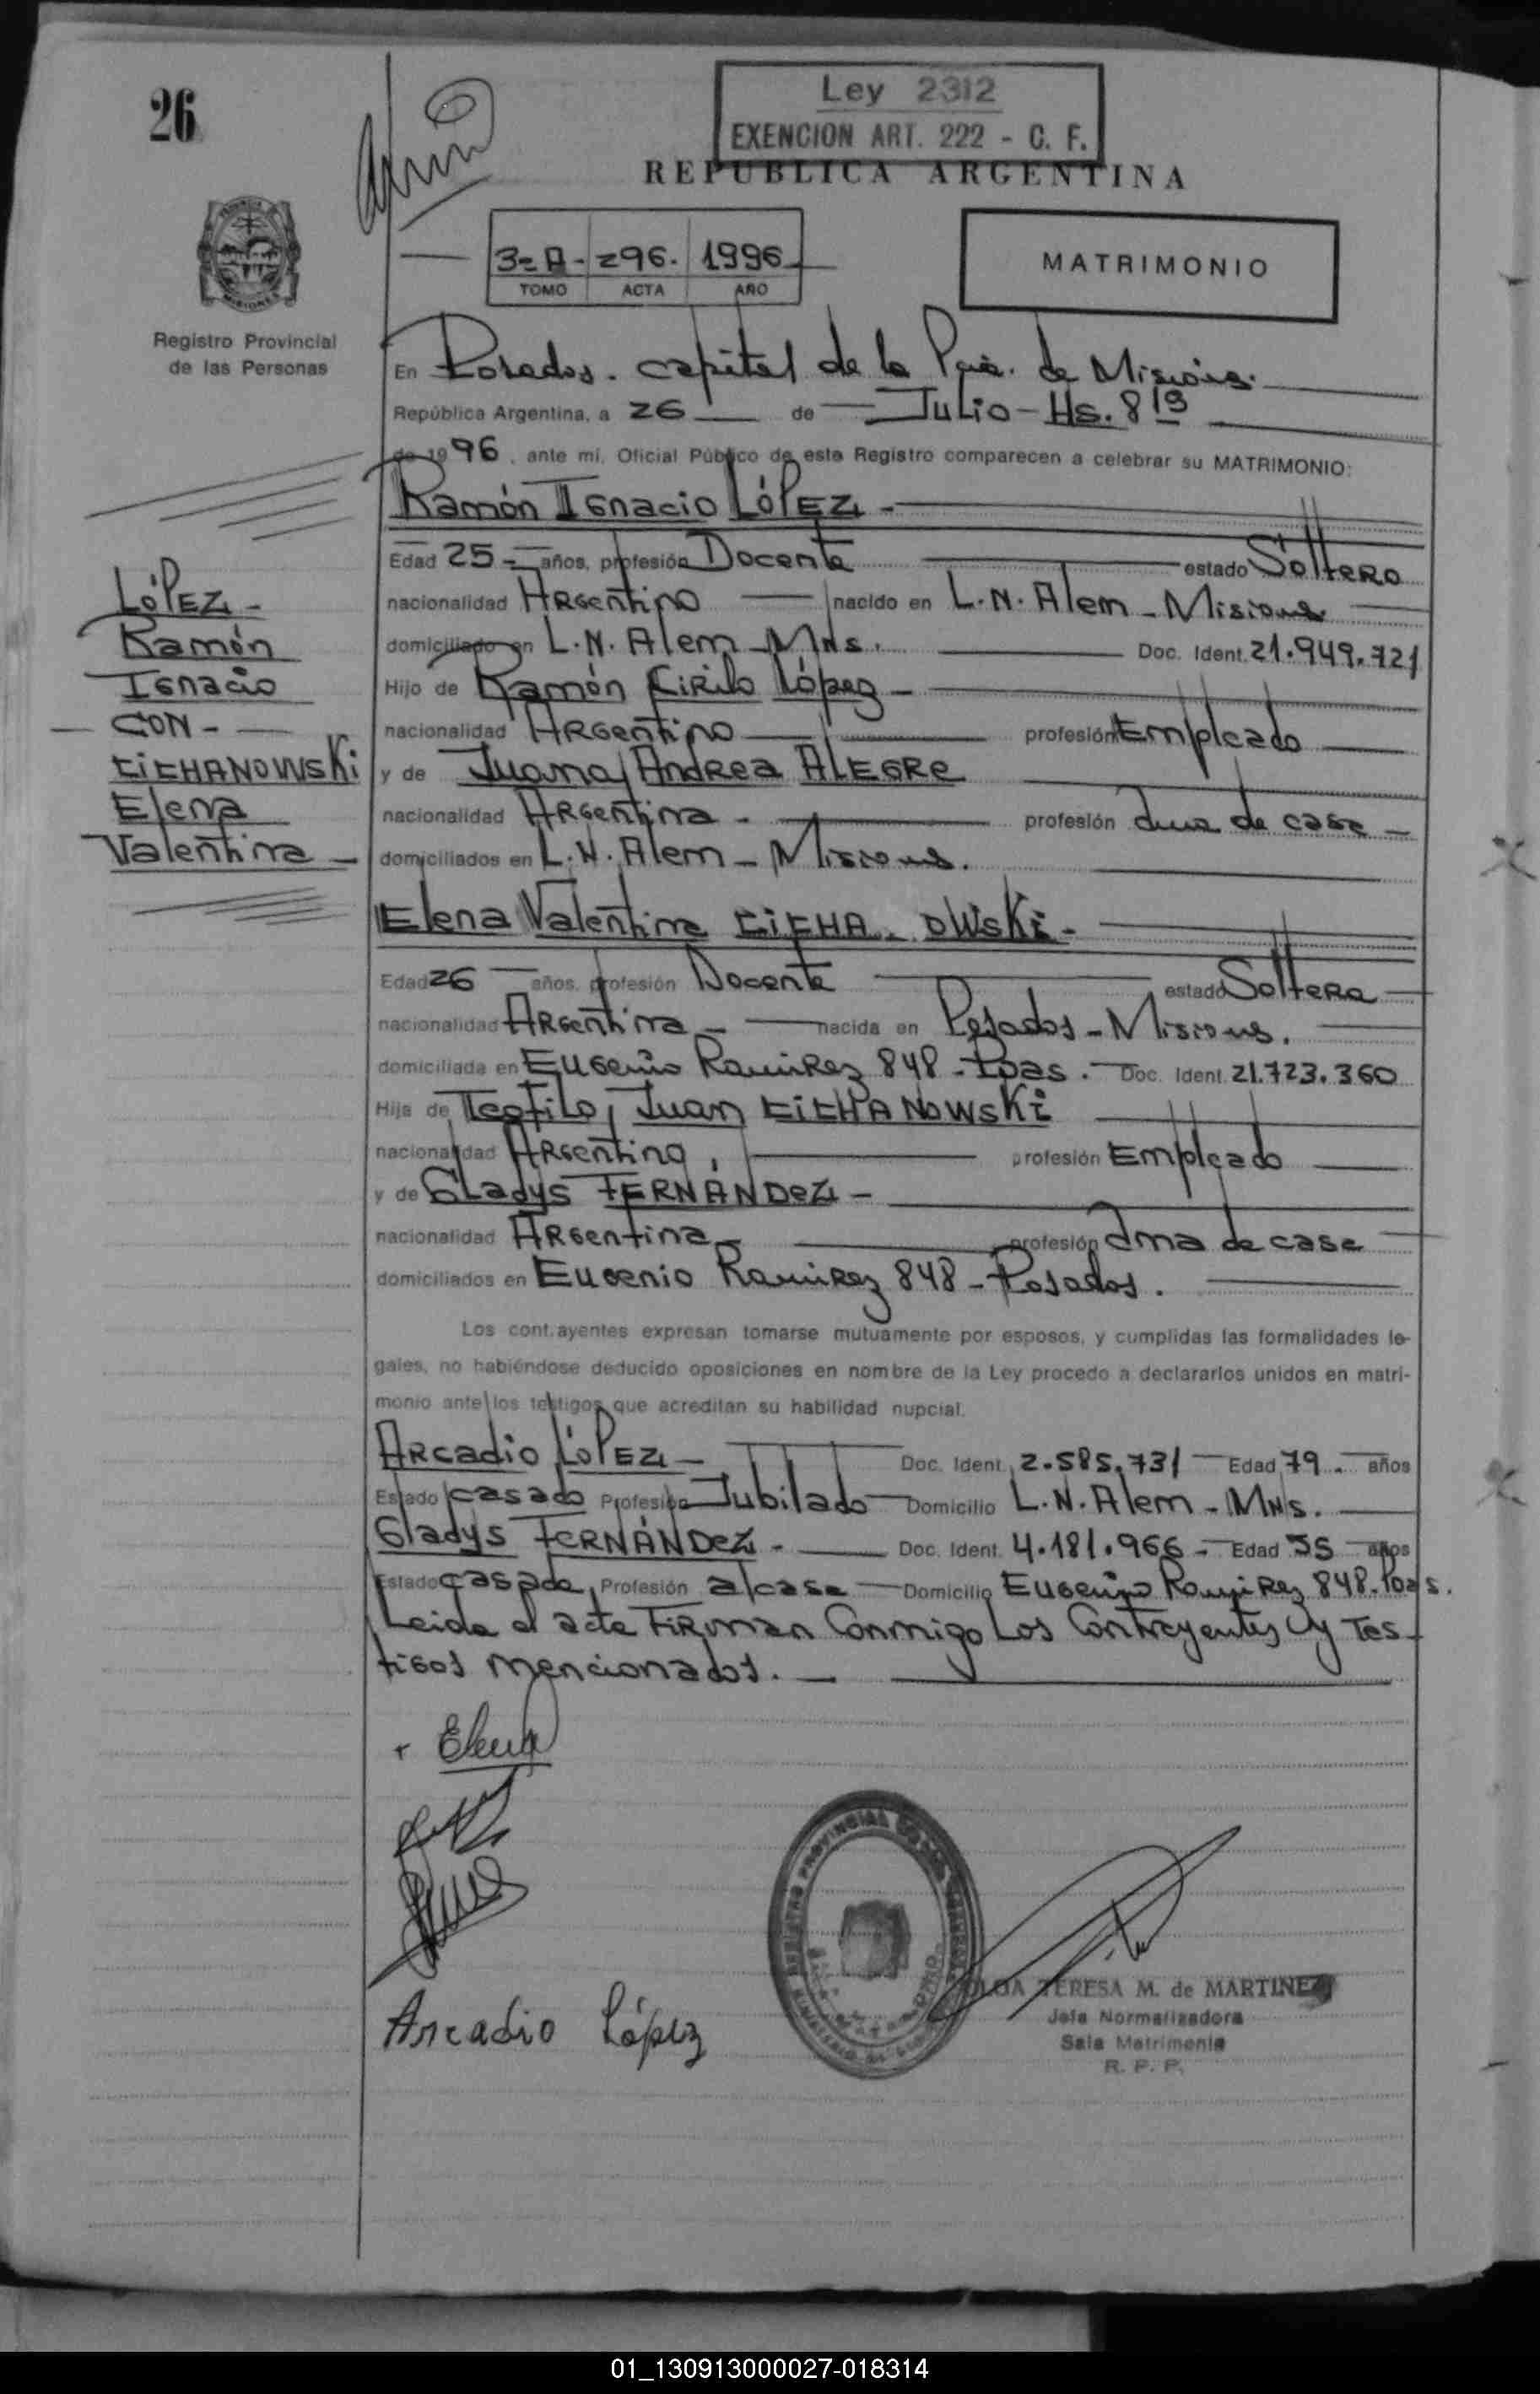 26
Ley 2312
EXENCION ART. 222 - C. F.
REPUBLICA ARGENTINA
3=A- 296. 1996
TOMO ACTA AÑO
MATRIMONIO
Registro Provincial
de las Personas
En Posadas. capital de la Pcia. de Misiones.
República Argentina, a 26 de Julio - Hs. 8 19
de 1996, ante mi, Oficial Público de este Registro comparecen a celebrar su MATRIMONIO:
Ramón Ignacio LÓPEZ -
Edad 25 - años, profesión Docente estado Soltero
nacionalidad Argentino nacido en L.N. Alem - Misiones.
domiciliado en L.N. Alem - Mns. Doc. Ident. 21.949.721
Hijo de Ramón Cirilo López -
nacionalidad Argentino profesión Empleado
y de Juana Andrea ALEGRE
nacionalidad Argentina - profesión Ama de casa -
domiciliados en L.N. Alem - Misiones.
LÓPEZ -
Ramón
Ignacio
- CON -
CICHANOWSKI
Elena
Valentina -
Elena Valentina CICHA OWSKI -
Edad 26 años, profesión Docente estado Soltera
nacionalidad Argentina - nacida en Posadas - Misiones.
domiciliada en Eugenio Ramirez 848 - Pdas. - Doc. Ident. 21.723.360
Hija de Teofilo Juan CICHANOWSKI
nacionalidad Argentino, profesión Empleado
y de Gladys FERNÁNDEZ -
nacionalidad Argentina - profesión Ama de casa
domiciliados en Eugenio Ramirez 848 - Posadas.
Los contrayentes expresan tomarse mutuamente por esposos, y cumplidas las formalidades le-
gales, no habiéndose deducido oposiciones en nombre de la Ley procedo a declararlos unidos en matri-
monio ante los testigos que acreditan su habilidad nupcial.
Arcadio LÓPEZ - Doc. Ident. 2.585.731 Edad 79 años
Estado casado Profesión Jubilado Domicilio L.N. Alem - Mns.
Gladys FERNÁNDEZ - Doc. Ident. 4.181.966 - Edad 55 años
Estado casada, Profesión a/casa Domicilio Eugenio Ramirez 848 - Pdas.
Leida el acta Firman Conmigo Los Contrayentes y Tes-
tigos mencionados. -
Elena
Arcadio López
OLGA TERESA M. de MARTINEZ
Jefa Normalizadora
Sala Matrimonio
R. P. P.
01_130913000027-018314